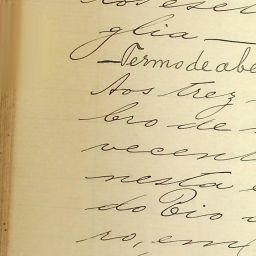 glia —
— Termo de abe
Aos trez
bro de
vecent
nesta e
do Rio
ro, em